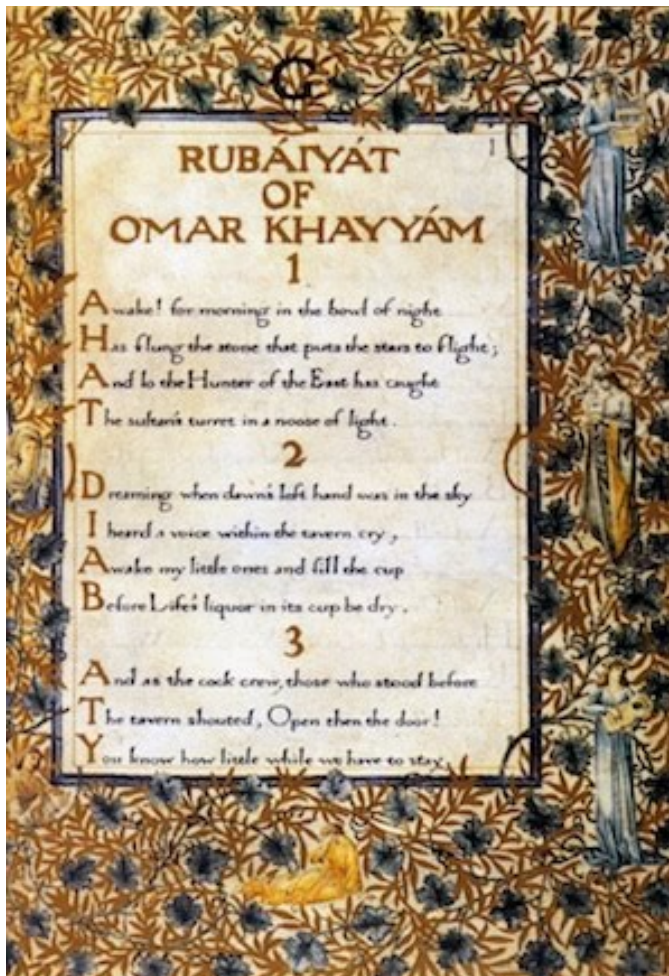 G
1
RUBÁIYÁT
OF
OMAR KHAYYÁM
1
Awake! for morning in the bowl of night
Has flung the stone that puts the stars to flight;
And lo the Hunter of the East has caught
The sultan's turret in a noose of light.
2
Dreaming when dawn's left hand was in the sky
I heard a voice within the tavern cry,
Awake my little ones and fill the cup
Before Life's liquor in its cup be dry.
3
And as the cock crew, those who stood before
The tavern shouted, Open then the door!
You know how little while we have to stay,